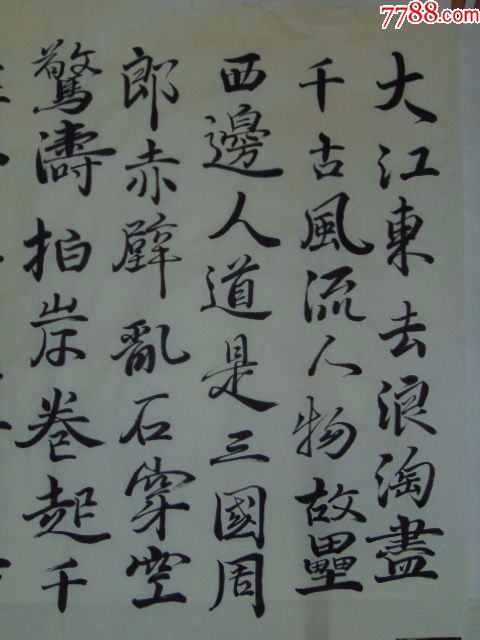 7788.com
大江東去浪淘盡
千古風流人物故壘
西邊人道是三國周
郎赤壁亂石穿空
驚濤拍岸卷起千